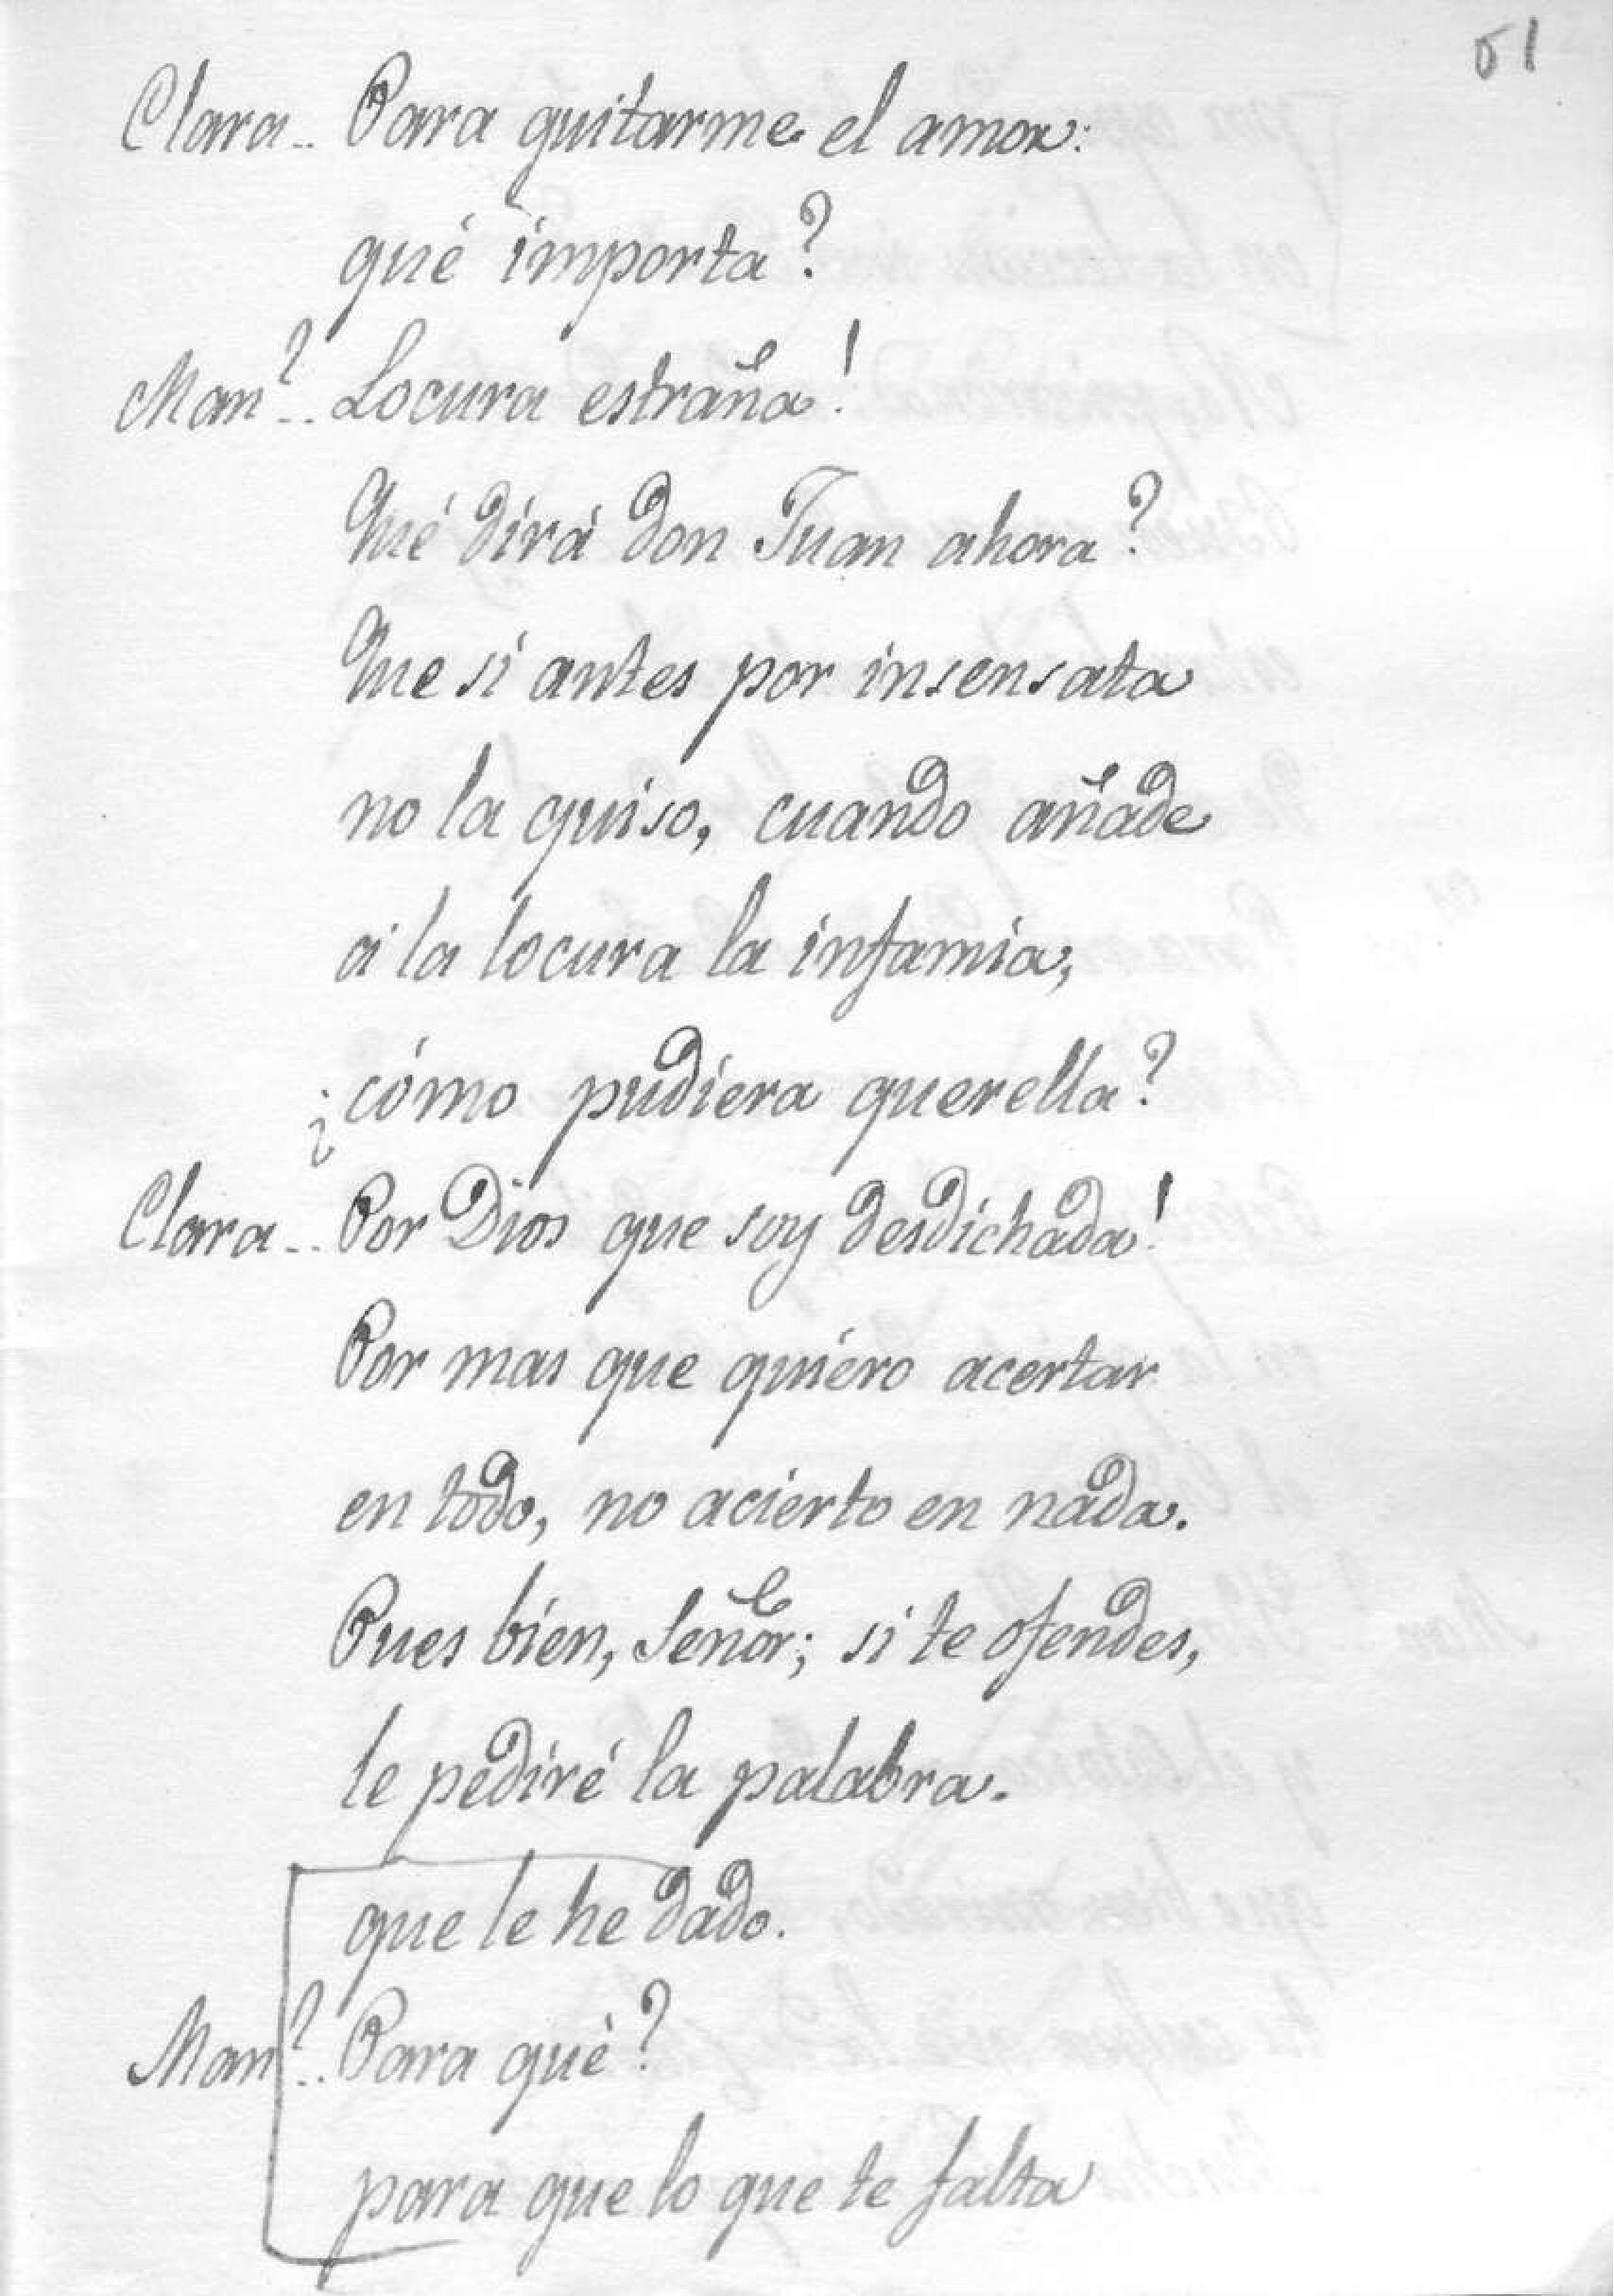 51
Clara.. Para quitarme el amor:
qué importa?
Man?.. Locura estraña!
Qué dirá don Juan ahora?
Que si antes por insensata
no la quiso, cuando añade
á la locura la infamia,
¿cómo pudiera querella?
Clara.. Por Dios que soy desdichada!
Por mas que quiero acertar
en todo, no acierto en nada.
Pues bien, Señor; si te ofendes,
le pediré la palabra.
que le he dado.
Man?.. Para qué?
para que lo que te falta